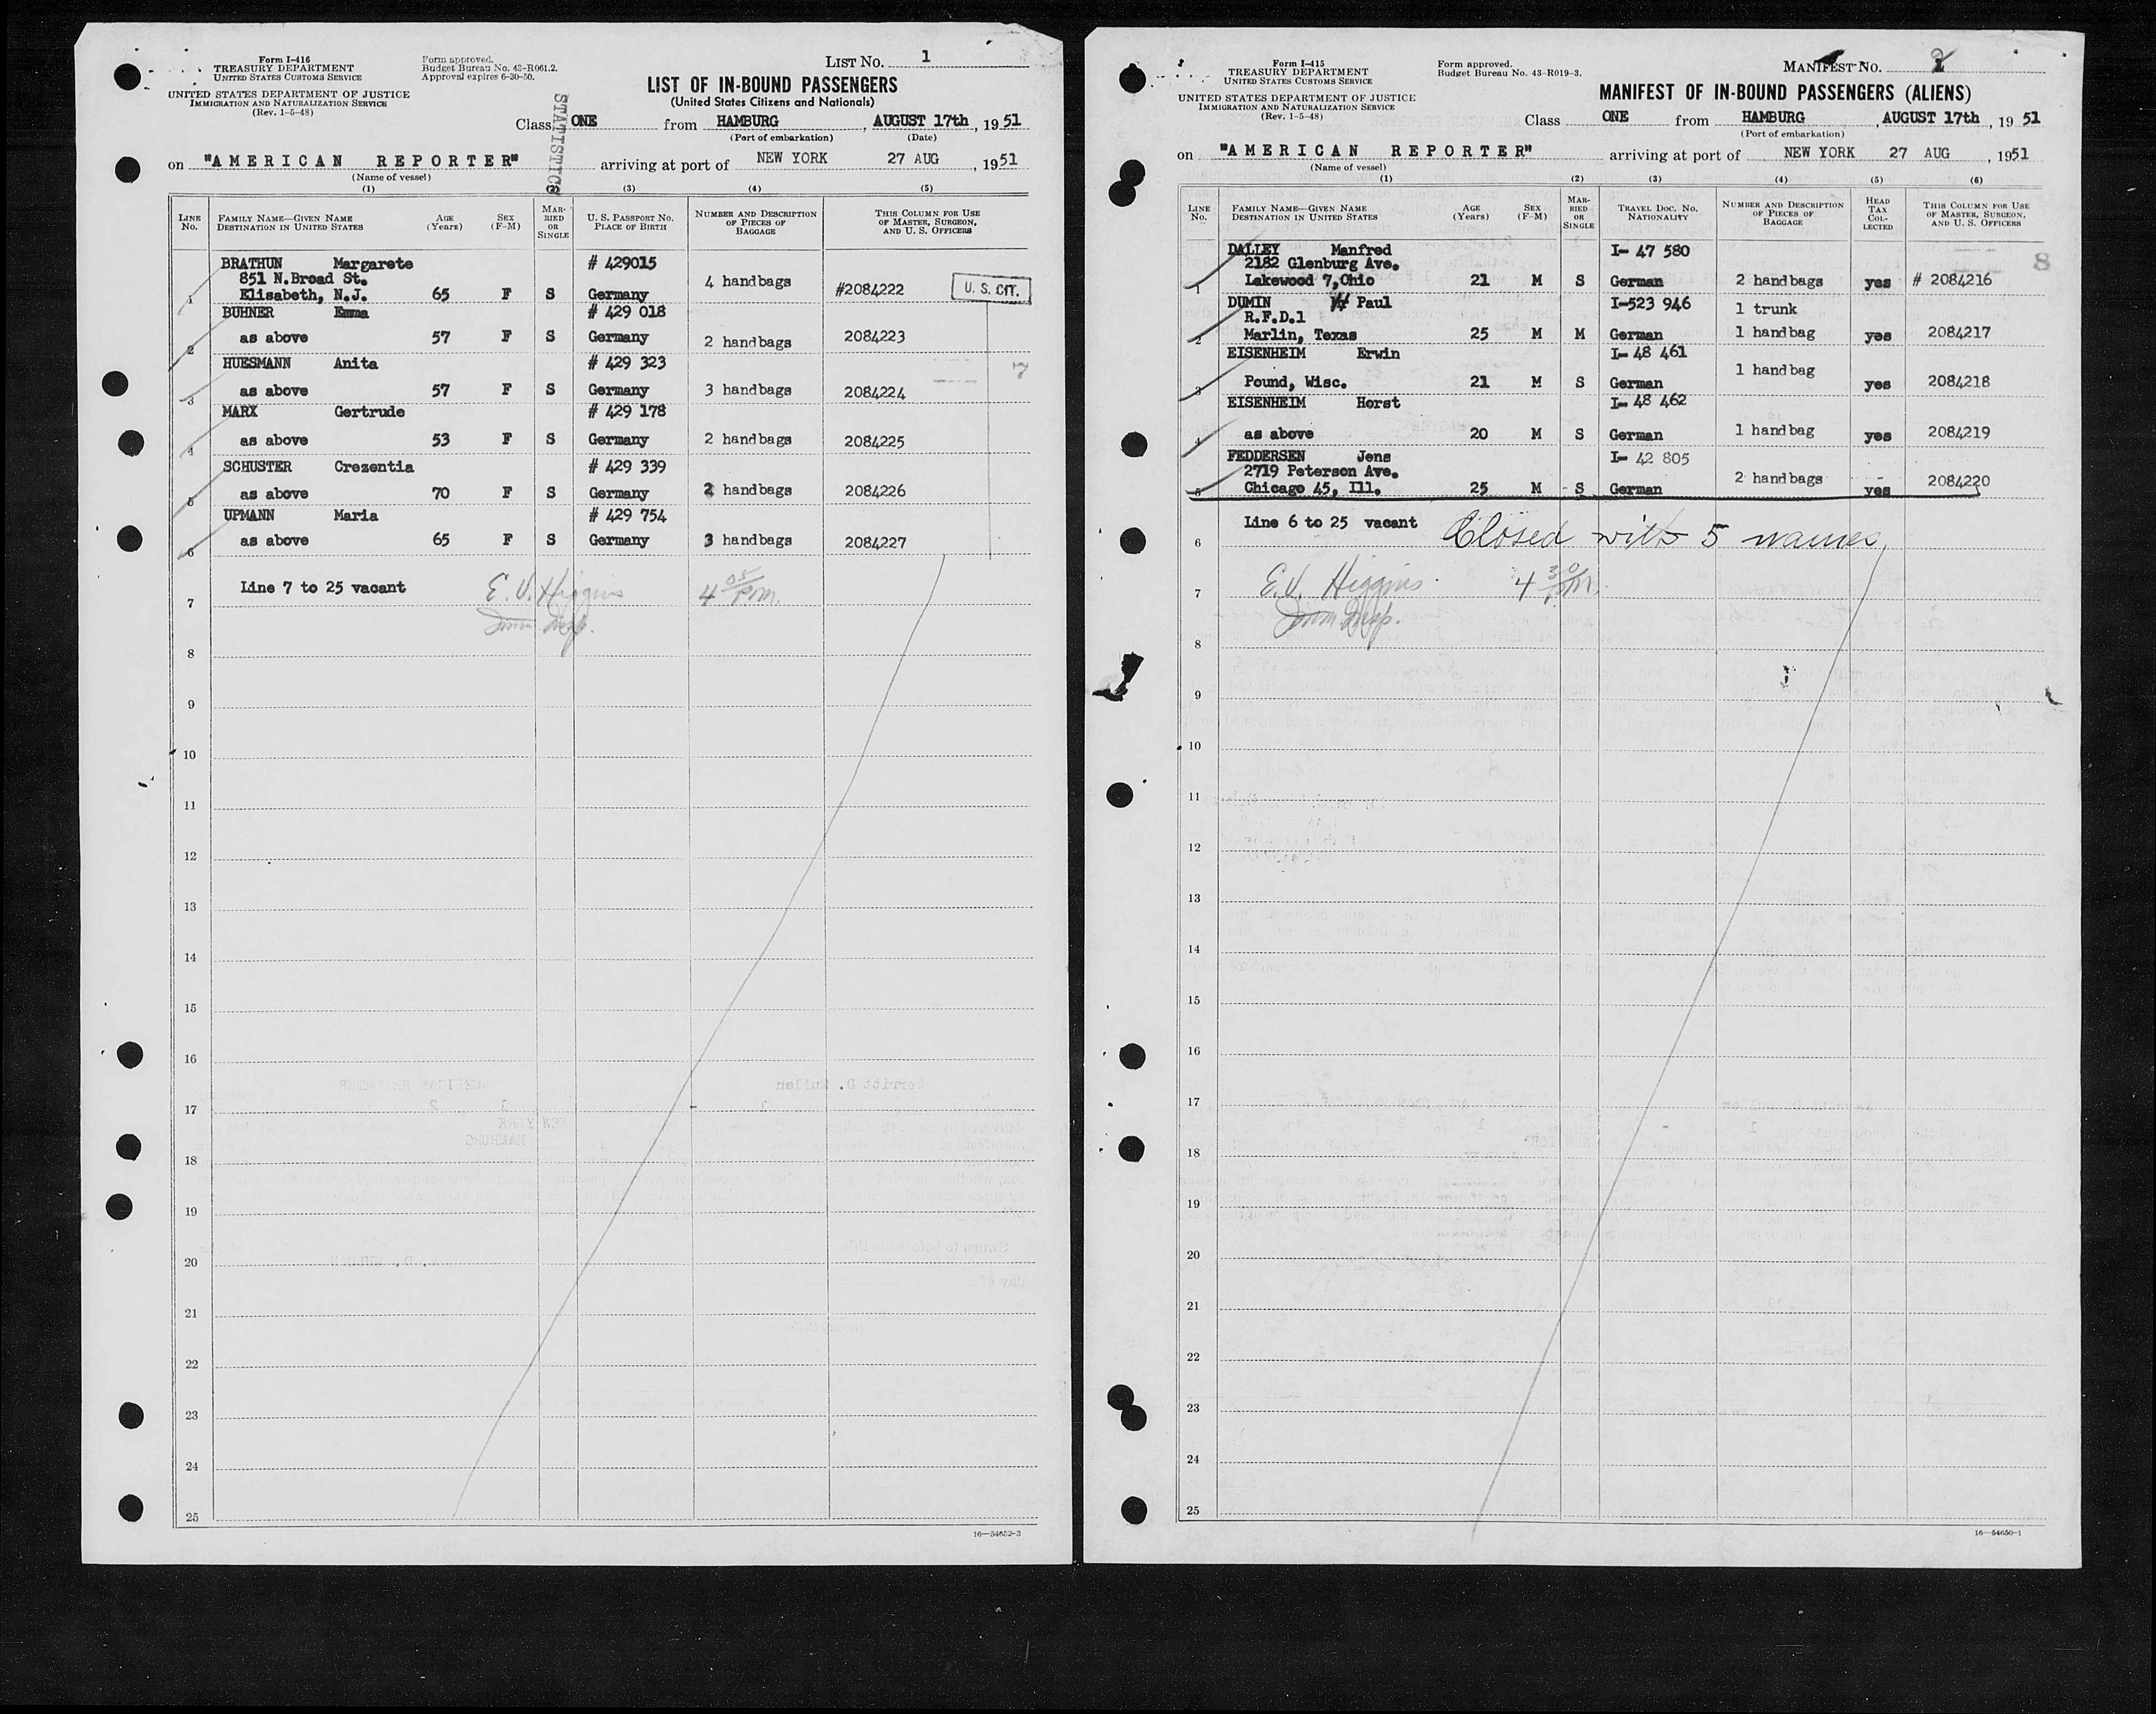 Form I-416
TREASURY DEPARTMENT
UNITED STATES CUSTOMS SERVICE
UNITED STATES DEPARTMENT OF JUSTICE
IMMIGRATION AND NATURALIZATION SERVICE
(Rev. 1-5-48)
Form approved.
Budget Bureau No. 43-R061.2.
Approval expires 6-30-50.
LIST NO. 1
LIST OF IN-BOUND PASSENGERS
(United States Citizens and Nationals)
STATISTICS
Class ONE from HAMBURG, AUGUST 17th, 1951
(Port of embarkation) (Date)
on "AMERICAN REPORTER" arriving at port of NEW YORK 27 AUG, 1951
(Name of vessel)
(1) (2) (3) (4) (5)
LINE No. FAMILY NAME—GIVEN NAME DESTINATION IN UNITED STATES AGE (Years) SEX (F-M) MARRIED OR SINGLE U. S. PASSPORT NO. PLACE OF BIRTH NUMBER AND DESCRIPTION OF PIECES OF BAGGAGE THIS COLUMN FOR USE OF MASTER, SURGEON, AND U. S. OFFICERS
BRATHUN Margarete # 429015
851 N.Broad St. 4 handbags
1 Elisabeth, N.J. 65 F S Germany #2084222 U. S. CIT.
BUHNER Emma # 429 018
2 as above 57 F S Germany 2 handbags 2084223
HUESMANN Anita # 429 323
3 as above 57 F S Germany 3 handbags 2084224
MARX Gertrude # 429 178
4 as above 53 F S Germany 2 handbags 2084225
SCHUSTER Crezentia # 429 339
5 as above 70 F S Germany 2 handbags 2084226
UPMANN Maria # 429 754
6 as above 65 F S Germany 3 handbags 2084227
Line 7 to 25 vacant E. V. Higgins 4 05 PM.
7
Imm Insp.
8
9
10
11
12
13
14
15
16
17
18
19
20
21
22
23
24
25
16—54652-3
Form I-415
TREASURY DEPARTMENT
UNITED STATES CUSTOMS SERVICE
UNITED STATES DEPARTMENT OF JUSTICE
IMMIGRATION AND NATURALIZATION SERVICE
(Rev. 1-5-48)
Form approved.
Budget Bureau No. 43-R019-3.
MANIFEST NO. 2
MANIFEST OF IN-BOUND PASSENGERS (ALIENS)
Class ONE from HAMBURG, AUGUST 17th, 1951
(Port of embarkation)
on "AMERICAN REPORTER" arriving at port of NEW YORK 27 AUG, 1951
(Name of vessel)
(1) (2) (3) (4) (5) (6)
LINE No. FAMILY NAME—GIVEN NAME DESTINATION IN UNITED STATES AGE (Years) SEX (F-M) MARRIED OR SINGLE TRAVEL DOC. NO. NATIONALITY NUMBER AND DESCRIPTION OF PIECES OF BAGGAGE HEAD TAX COLLECTED THIS COLUMN FOR USE OF MASTER, SURGEON, AND U. S. OFFICERS
DALLEY Manfred I- 47 580
2182 Glenburg Ave. 8
1 Lakewood 7, Ohio 21 M S German 2 handbags yes # 2084216
DUMIN Paul I-523 946 1 trunk
R.F.D.1
2 Marlin, Texas 25 M M German 1 handbag yes 2084217
EISENHEIM Erwin I- 48 461 1 handbag
3 Pound, Wisc. 21 M S German yes 2084218
EISENHEIM Horst I- 48 462
4 as above 20 M S German 1 handbag yes 2084219
FEDDERSEN Jens I- 42 805
2719 Peterson Ave. 2 handbags
5 Chicago 45, Ill. 25 M S German yes 2084220
Line 6 to 25 vacant Closed with 5 names
6
E. V. Higgins 4 30 PM.
7
Imm Insp.
8
9
10
11
12
13
14
15
16
17
18
19
20
21
22
23
24
25
16—54650-1